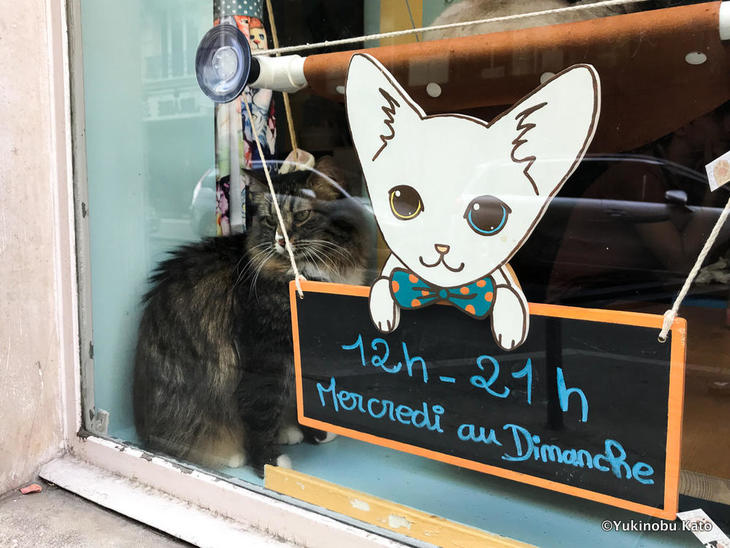 12h - 21h
Mercredi au Dimanche
©Yukinobu Kato